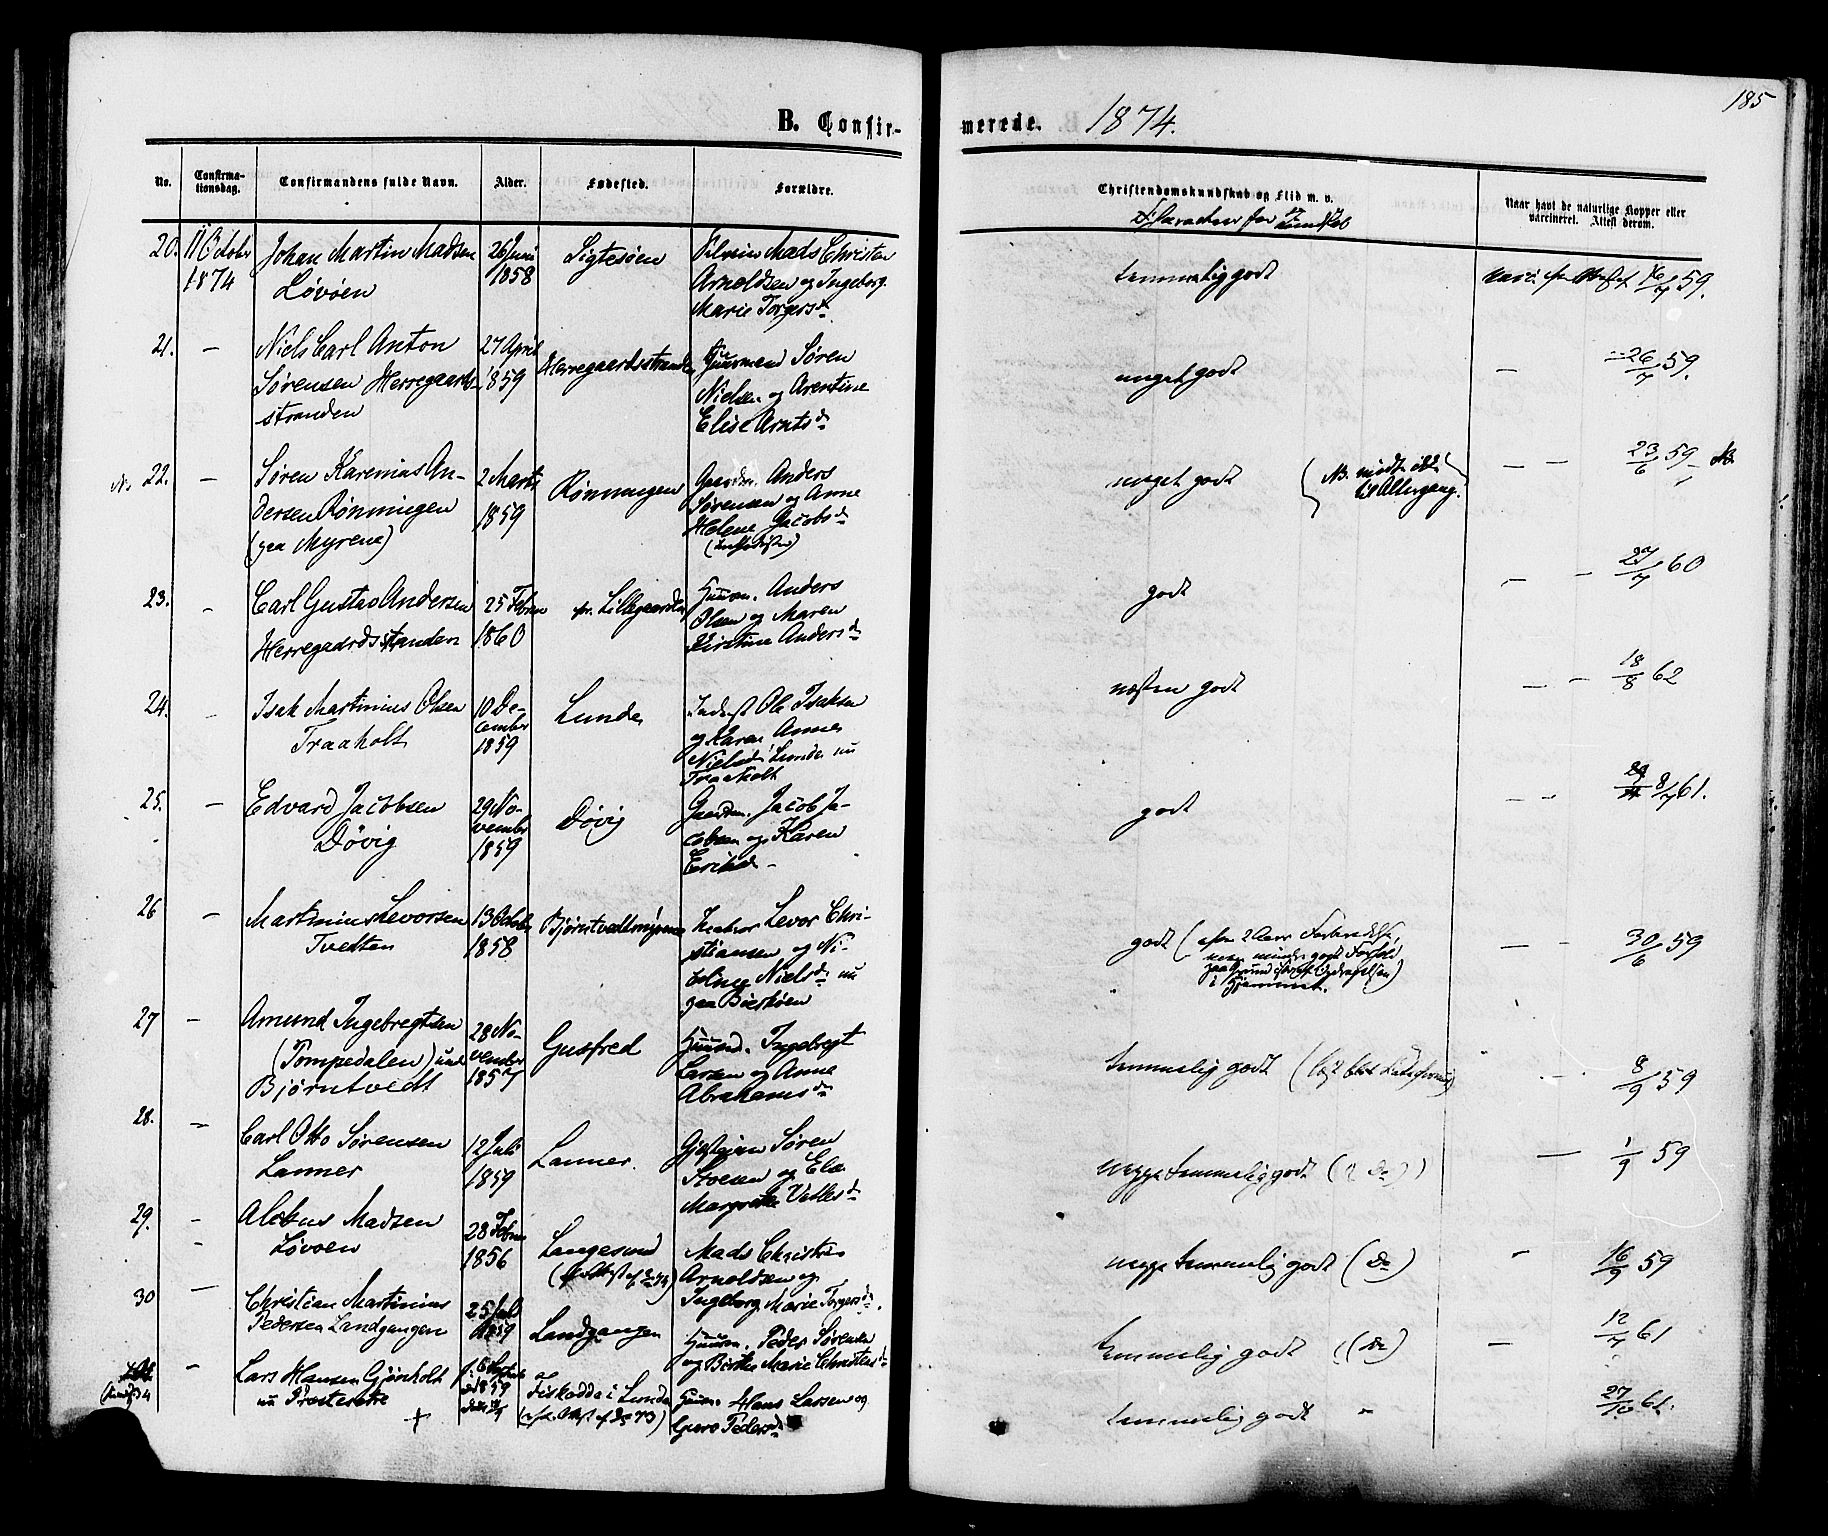 185
B. Confir-
merede. 1874.
No.
Confirma-
tionsdag.
Confirmandens fulde Navn.
Alder.
Fødested.
Forældre.
Christendomskundskab og Flid m. v.
Naar havt de naturlige Kopper eller
vaccineret. Attest derom.
Character for Kundskab
20. 11 Octobr 1874
Johan Martin Madsen
Løvøen
26 Juni
1858
Sigtesøen
Mads Christen
Arnoldsen og Ingeborg
Marie Torgersd.
temmelig godt
59.
21. —
Niels Carl Anton
Sørensen Herregaards-
stranden
27 April
1859
Herregaardsstranden
Huusmand Søren
Nielsen og Arentine
Elise Arntsd.
meget godt
— 26/7 59.
22. —
Søren Karenius An-
dersen Rønningen
(paa Myrene)
2 Marts
1859
Rønningen
Gaardbr. Anders
Sørensen og Anne
Helene Jacobsd.
meget godt
(NB. mødte ikke
til Altergang.)
— — 23/6 59 NB.
23. —
Carl Gustav Andersen
Herregaardsstranden
25 Febru
1860
pr. Lillegaarden
Huusm. Anders
Olsen og Maren
Kirstine Andersd.
godt
— — 27/7 60
24. —
Isak Martinius Olsen
Traaholt
10 De-
cember
1859
Lunde
Inderst Ole Isaksen
og Karen Anne
Nielsd. Lunde nu
Traaholt
næsten godt
— — 18/8 62
25. —
Edvard Jacobsen
Døvig
29 No-
vember
1859
Døvig
Gaardm. Jacob Ja-
cobsen og Karen
Eriksd.
godt
— — 8/7 61.
26 —
Martinius Levorsen
Tvetten
13 Octobr
1858
Bjørntvedtmyrene
Levor Chri-
stiansen og Ni-
coline Nielsd. nu
paa Bierkøen
godt (efter 2 Aars Forberedelse
men mindre godt Forhold
paa Grund af Opdragelsen
i Hjemmet.)
— — 30/6 59
27 —
Amund Ingebregtsen
(Pompedalen) und.
Bjørntvedt
28 No-
vember
1857
Gusfred
Huusm. Ingebregt
Larsen og Anne
Abrahamsd.
temmelig godt
— — 8/9 59
28. —
Carl Otto Sørensen
Lanner
12 Juli
1859
Lanner.
Søren
og
Margrethe
neppe temmelig godt (do)
— 1/9 59
29. —
Madsen
Løvøen
28 Febru
1856
Langesund
Mads Christen
Arnoldsen og
Ingeborg Marie Torgersd.
neppe temmelig godt (do)
— 16/9 59
30 —
Christian Martinius
Pedersen Landgangen
25 Juli
1859
Landgangen
Huusm. Peder Sørensen
og Birthe Marie Christensd.
temmelig godt (do)
— 12/7 61
—
Lars Hansen Gjønholt
nu
1859
i Lunde
Huusm. Hans Larsen og
Guro Pedersd.
temmelig godt —
27/10 61.